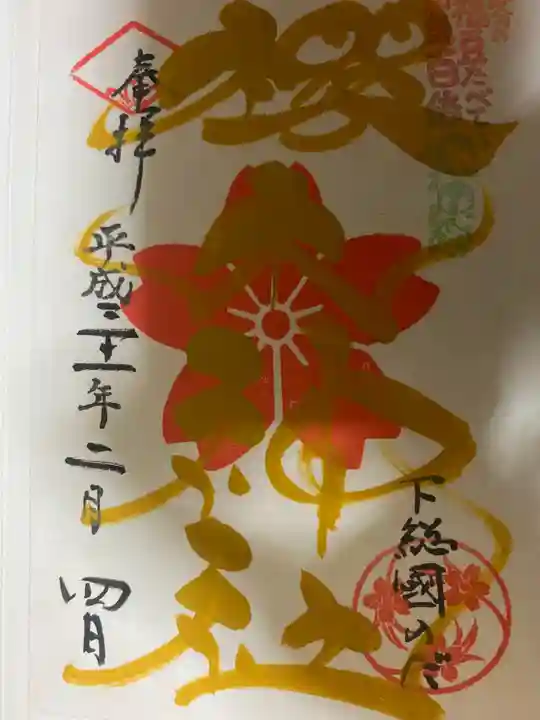 櫻木神社
奉拝
平成三十一年二月四日
下総國のだ